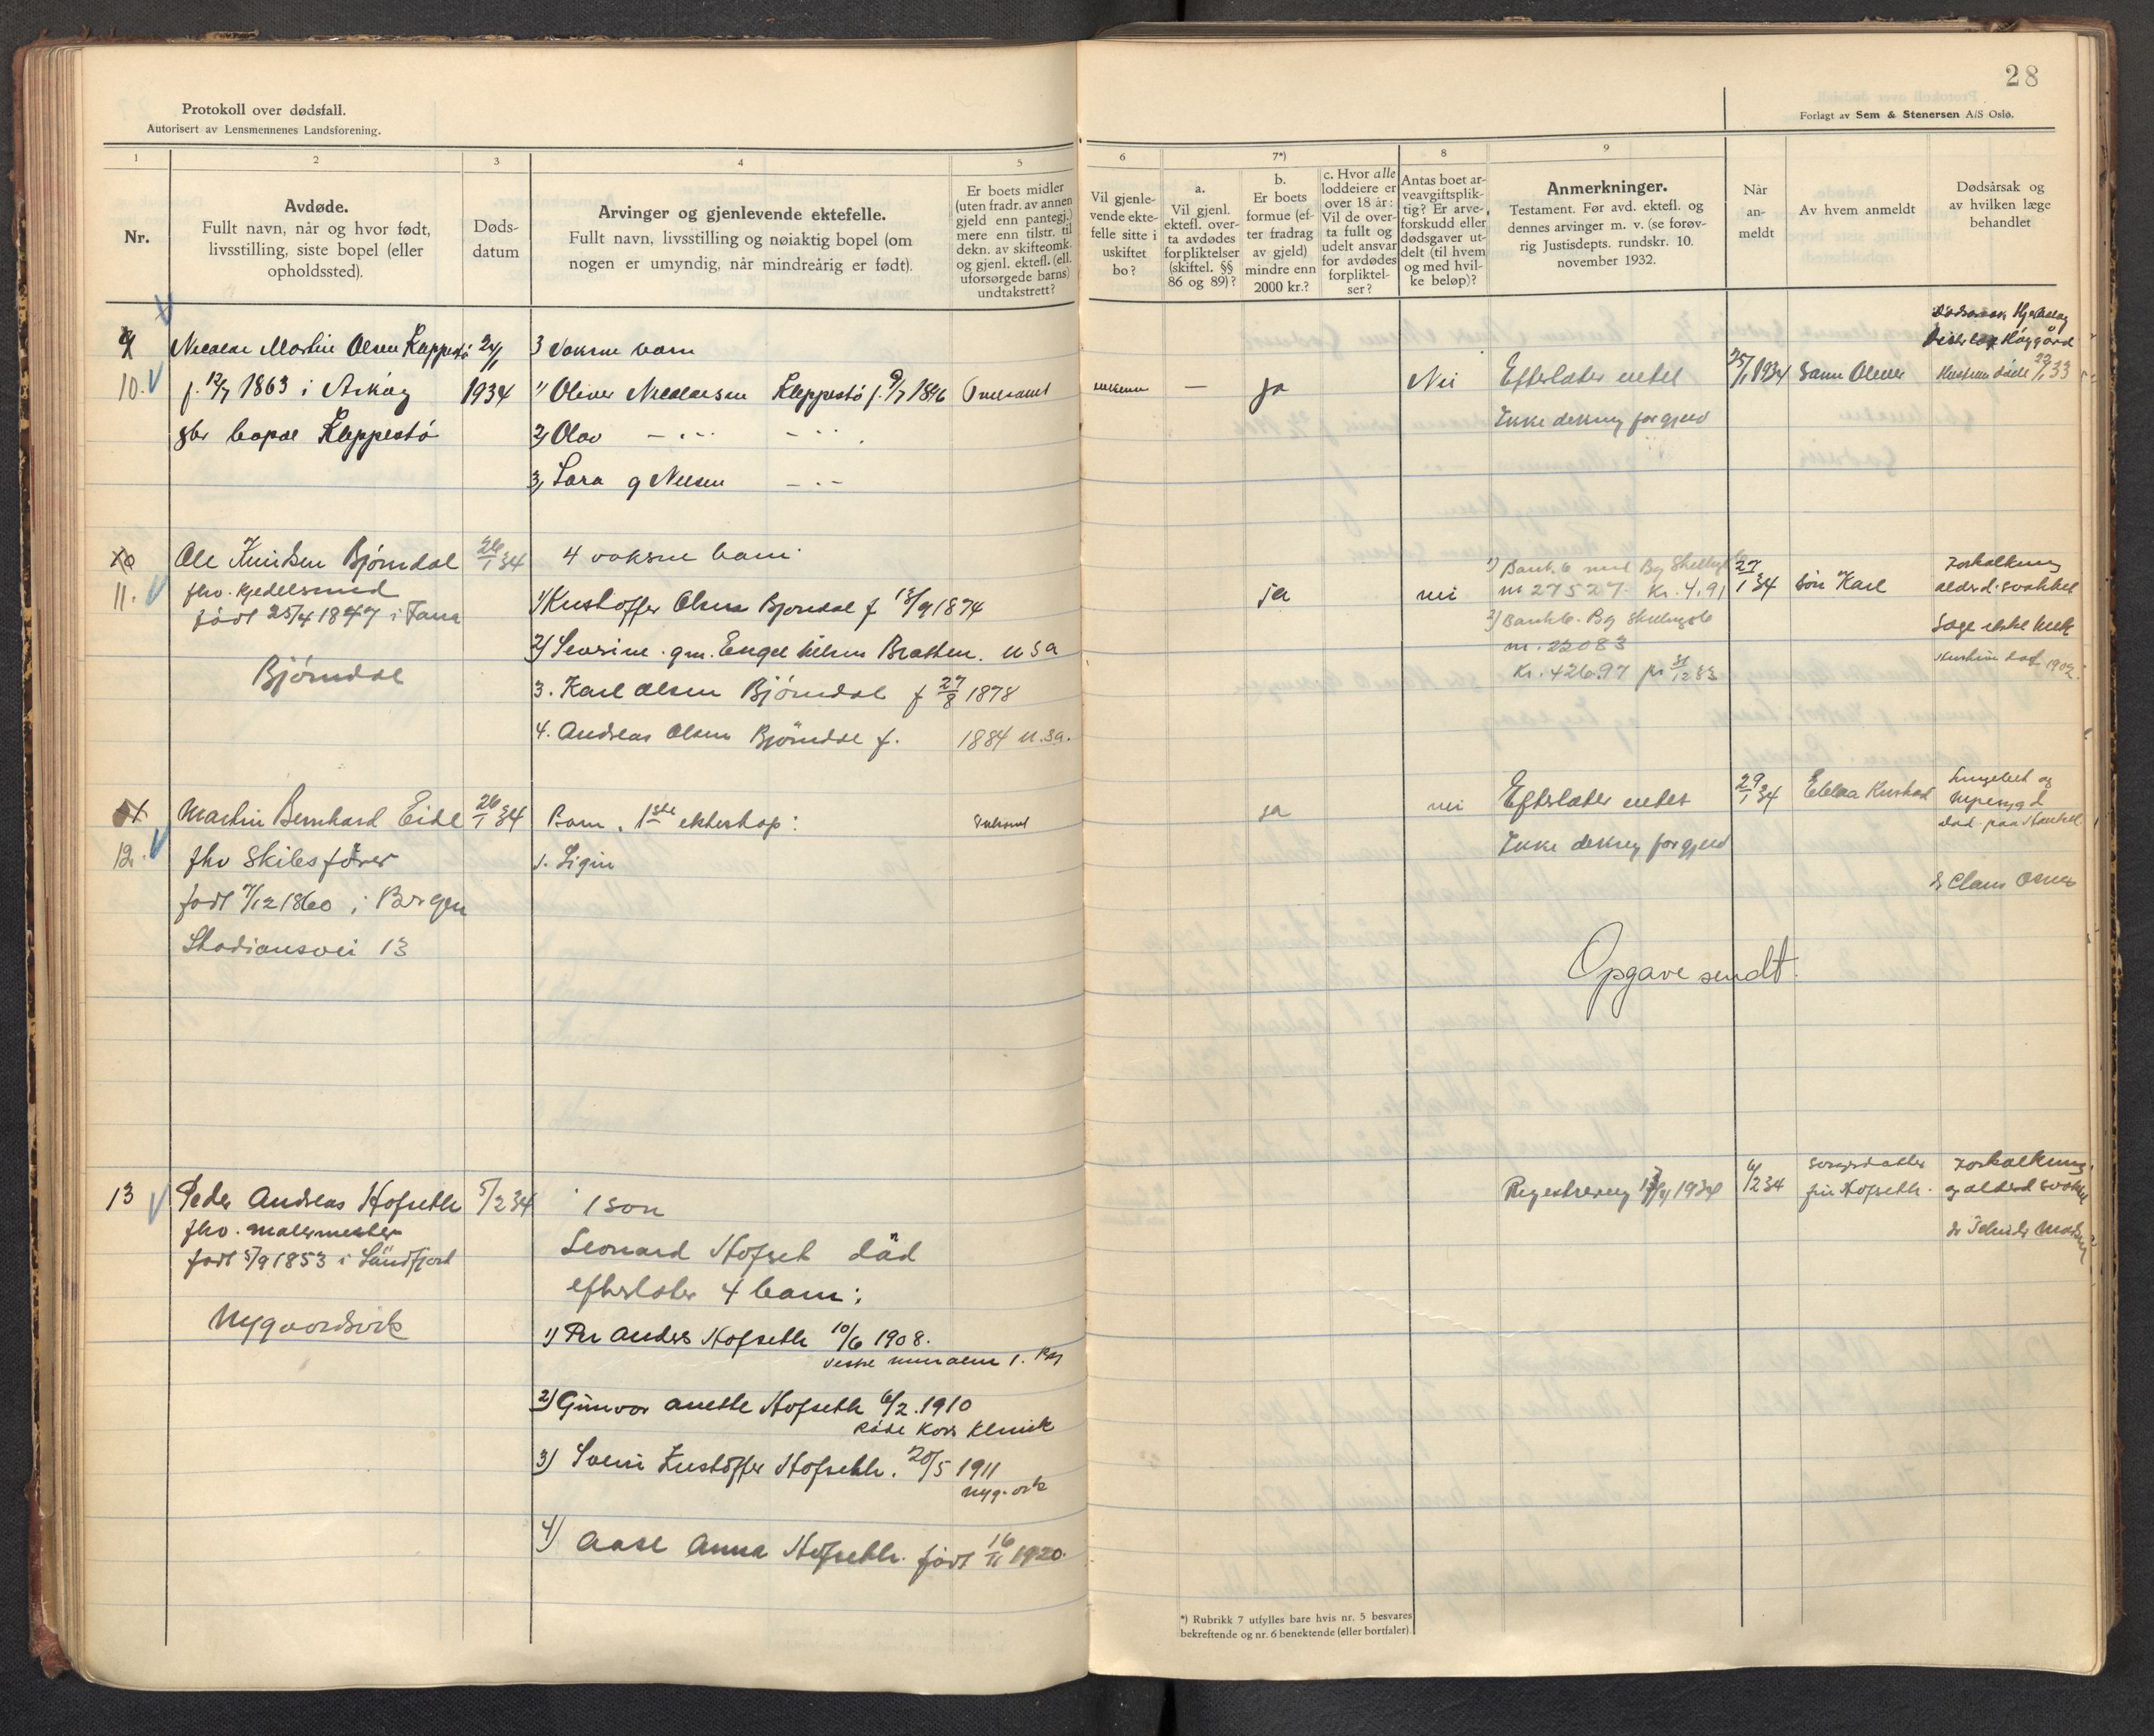 28
Protokoll over dødsfall.
Autorisert av Lensmennenes Landsforening.
Forlagt av Sem & Stenersen A/S Oslo.
1
2
3
4
5
6
7*)
8
9
Nr.
Avdøde.
Fullt navn, når og hvor født,
livsstilling, siste bopel (eller
opholdssted).
Døds-
datum
Arvinger og gjenlevende ektefelle.
Fullt navn, livsstilling og nøiaktig bopel (om
nogen er umyndig, når mindreårig er født).
Er boets midler
(uten fradr. av annen
gjeld enn pantegj.)
mere enn tilstr. til
dekn. av skifteomk.
og gjenl. ektefl. (ell.
uforsørgede barns)
undtakstrett?
Vil gjenle-
vende ekte-
felle sitte i
uskiftet
bo?
a.
Vil gjenl.
ektefl. over-
ta avdødes
forpliktelser
(skiftel. §§
86 og 89)?
b.
Er boets
formue (ef-
ter fradrag
av gjeld)
mindre enn
2000 kr.?
c. Hvor alle
loddeiere er
over 18 år:
Vil de over-
ta fullt og
udelt ansvar
for avdødes
forpliktel-
ser?
Antas boet ar-
veavgiftsplik-
tig? Er arve-
forskudd eller
dødsgaver ut-
delt (til hvem
og med hvil-
ke beløp)?
Anmerkninger.
Testament. Før avd. ektefl. og
dennes arvinger m. v. (se forøv-
rig Justisdepts. rundskr. 10.
november 1932.
Når
an-
meldt
Av hvem anmeldt
Dødsårsak og
av hvilken læge
behandlet
9
10.
Nicolai Martin Olsen Kleppestø
f. 12/7 1863 i Askøy
Kleppestø
24/1
1934
3 voksne barn
1) Oliver Nicolaisen Kleppestø f. 9/7 1896
2) Olav
3) Lara g Nilsen
ja
Nei
Efterlater intet
Ikke dekning for gjeld
25/1 1934
Sønn Oliver
11.
Ole Knudsen Bjørndal
fhv. gjedelsmed
født 25/4 1847 i Fana
Bjørndal
26/1 34
4 voksne barn.
1) Kristoffer Olsen Bjørndal f 18/9 1874
2) Severine. gm. Engel Nilsen Bratten. U S A
3. Karl Olsen Bjørndal f 27/8 1878
4. Andreas Olsen Bjørndal f. 1884 U.S.A.
ja
nei
nr 27527. Kr. 4.91
nr. 22083
Kr. 426.97 pr 31/12 33
27/1 34
Søn Karl
Forkalkning
alderd. svakhet
12.
Martin Bernhard Eide
fhv Skibsfører
født 7/12 1860 i Bergen
Stadionsvei 13
26/1 34
Barn. 1ste ekteskap:
1. Sigur
ja
nei
Efterlater intet
Ikke dekning for gjeld
29/1 34
Opgave sendt.
13
Peder Andreas Hofseth
fhv. malermester
født 5/9 1853 i Søndfjord
Nygaardsvik
5/2 34
1 søn
Leonard Hofset død
efterlater 4 barn:
1) Per Anders Hofseth 10/6 1908.
2) Gunvor Anette Hofseth 6/2. 1910
Røde Kors Klinik
3) Svein Kristoffer Hofseth. 20/5 1911
Nyg. vik
4) Aase Anna Hofseth. født 16/11 1920.
6/2 34
Svigerdatter
fru Hofseth.
Forkalkning
og alderd svakhet
*) Rubrikk 7 utfylles bare hvis nr. 5 besvares
bekreftende og nr. 6 benektende (eller bortfaler).